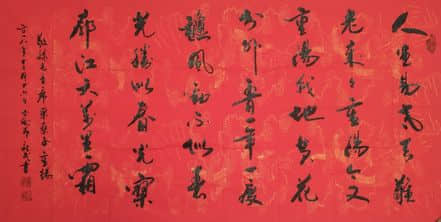 人生易老天難
老歲々重陽今又
重陽戰地黃花
分外香一年一度
龝風勁不似春
光勝似春光寥
廓江天萬里霜
毛主席采桑子重陽